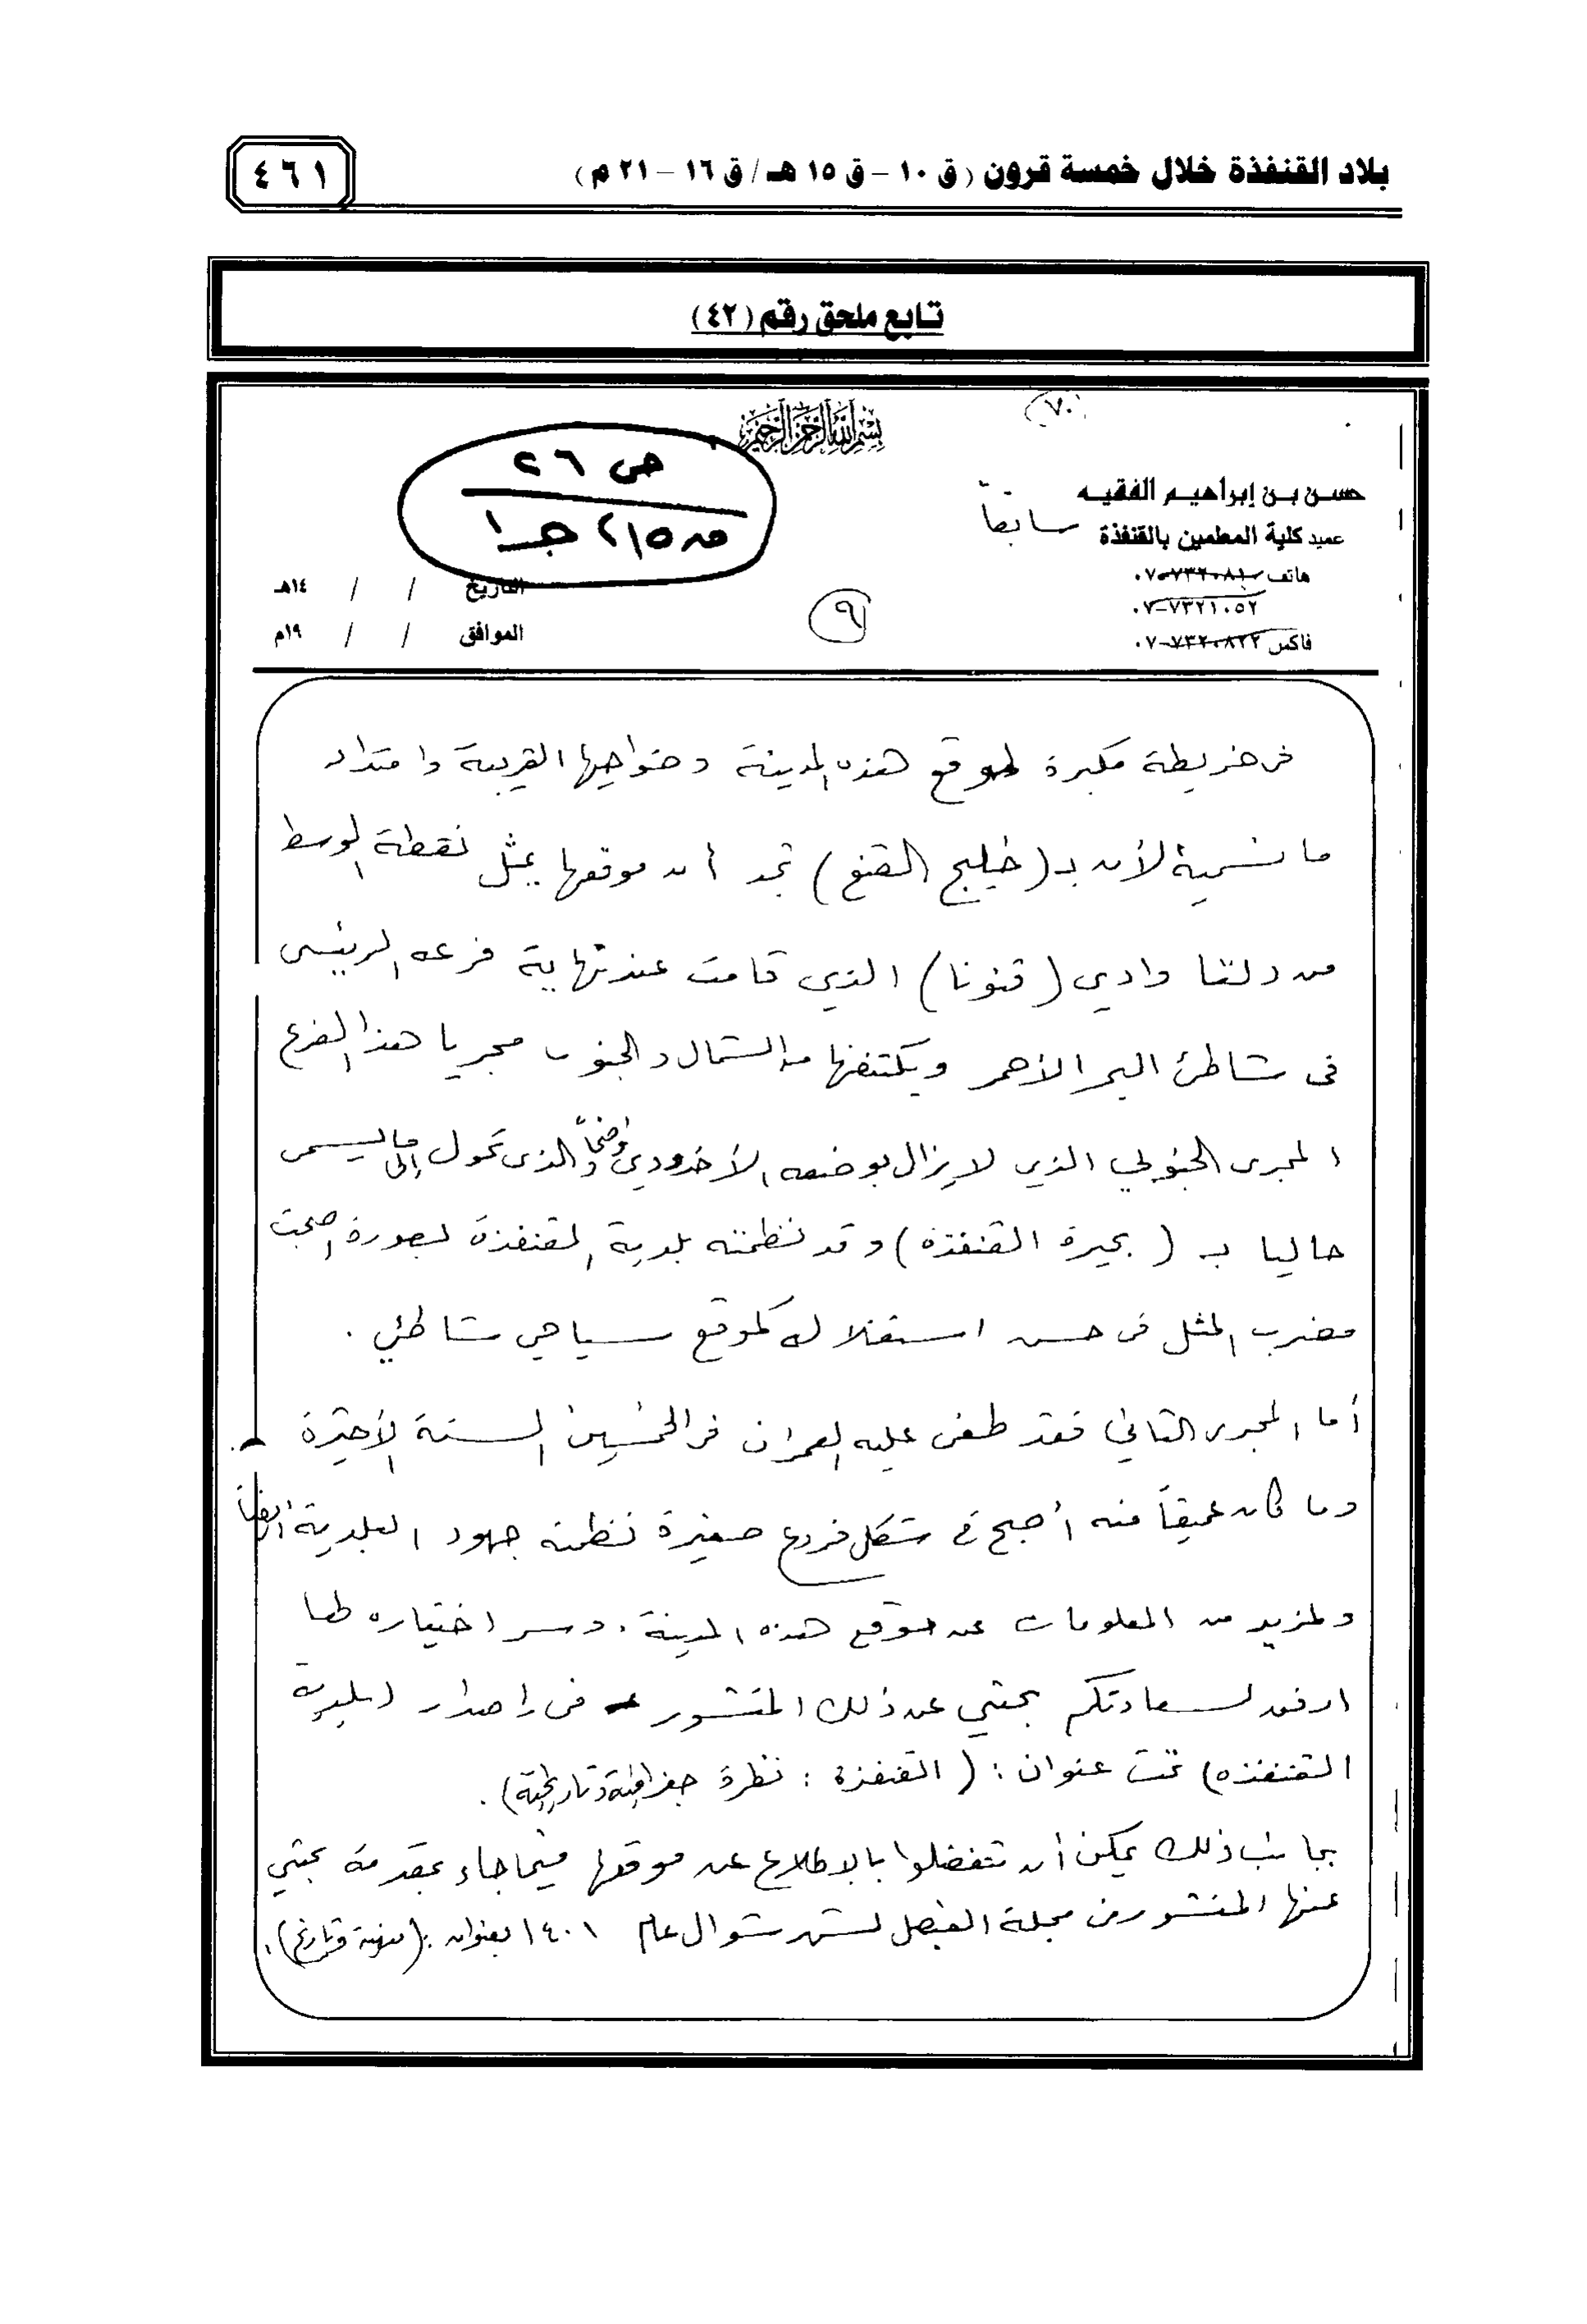 بلاد القنفذة خلال خمسة قرون (ق ١٠ – ق ١٥ هـ / ق ١٦ – ٢١ م)
٤٦١
تابع ملحق رقم (٤٢)
٧٠
بسم الله الرحمن الرحيم
ص ٢٦
ص ٢١٥ جـ ١
حسن بن إبراهيم الفقيه
عميد كلية المعلمين بالقنفذة سابقاً
هاتف ٧٣٢٠٨١٠-٠٧
٧٣٢١٠٥٢-٠٧
فاكس ٧٣٢٠٨٢٢-٠٧
التاريخ / / ١٤هـ
الموافق / / ١٩م
٩
فى خريطة مكبرة لموقع هذه المدينة وضواحيها القريبة وامتداد
ما نسميه الأن بـ (خليج القنع) نجد أن موقعها يمثل نقطة الوسط
من دلتا وادي (قنونا) الذي قامت عند نهاية فرعه الرئيسى
فى شاطئ البحر الأحمر ويكتنفها من الشمال والجنوب مجريا هذا الفرع
المجرى الجنوبي الذي لا يزال بوضعه الأخدودي واضحاً والذى تحول إلى ما يسمى
حاليا بـ (بحيرة القنفذة) وقد نظمته بلدية القنفذة بصورة اصبحت
مضرب المثل فى حسن استغلاله كموقع سياحي شاطئي .
أما المجرى الثاني فقد طغى عليه العمران فى الخمسين السنة الأخيرة
وما كان عميقاً منه أصبح فى شكل فروع صغيرة نظمته جهود البلدية أيضاً
ولمزيد من المعلومات عن موقع هذه المدينة . وسر اختياره لها
ارفق لسعادتكم بحثي عن ذلك المنشور فى إصدار (بلدية
القنفذه) تحت عنوان : (القنفذة : نظرة جغرافية وتاريخية) .
بجانب ذلك يمكن أن تتفضلوا بالاطلاع عن موقعها فيما جاء بمقدمة بحثي
عنها المنشور فى مجلة الفيصل لشهر شوال عام ١٤٠١ بعنوان : (مدينة وتاريخ) .